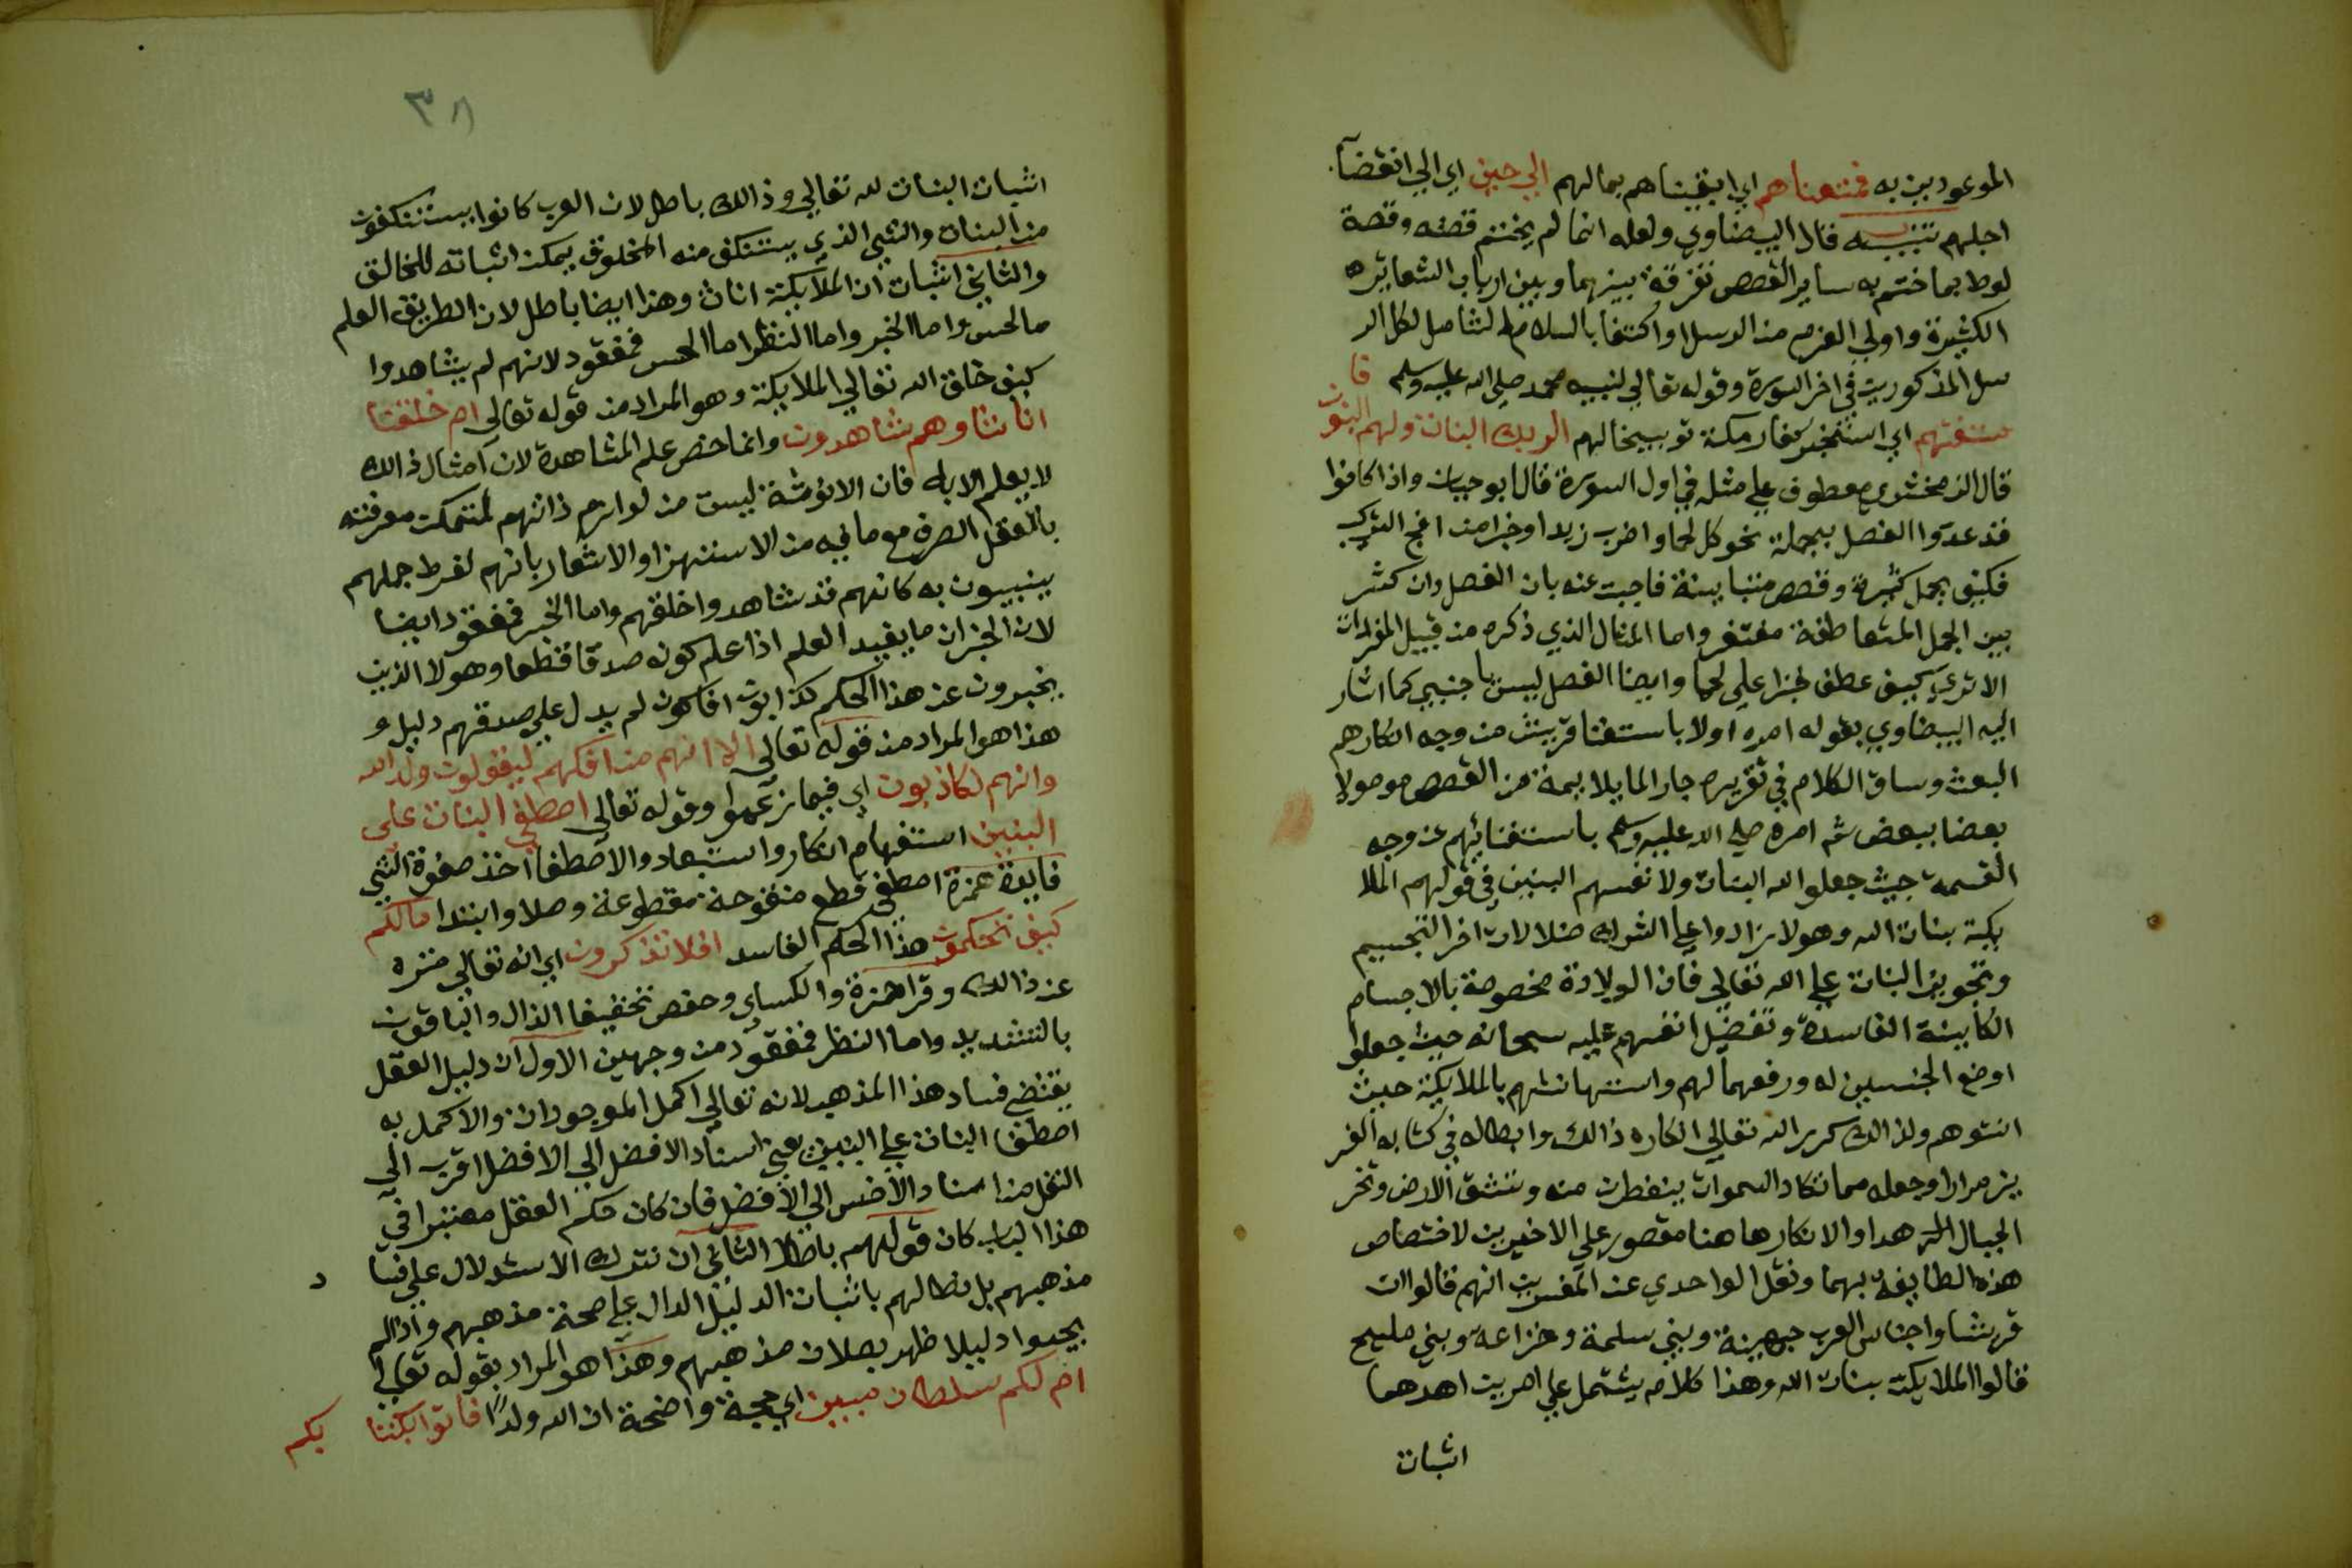 الموعودين به فمتعناهم اي ابقيناهم بمالهم الي حين اي الي انقضآ
اجلهم تنبيـه قال البيضاوي ولعله انما لم يختم قصته وقصة
لوط بما ختم به ساير القصص تفرقة بينهما وبين ارباب الشعاير
الكثيرة واولي العزم من الرسل او اكتفا بالسلام الشامل لكل الر
سل المذكورين في اخر السورة وقوله تعالي لنبيه محمد صلي الله عليه وسلم فا
ستفتهم اي استخبر كفار مكة توبيخا لهم الربك البنات ولهم البنون
قال الزمخشري معطوف علي مثله في اول السورة قال ابو حيان واذا كانوا
قد عدوا الفصل بجملة نحو كل لحما واضرب زيدا وخبزا من اقبح التركيب
فكيف بجمل كثيرة وقصص متباينة فاجيب عنه بان الفصل وان كثر
بين الجمل المتعاطفة مغتفر واما المثال الذي ذكره من قبيل المفردات
الا تري كيف عطف خبزا علي لحما وايضا الفصل ليس باجنبي كما اشار
اليه البيضاوي بقوله امره اولا باستفتا قريش من وجه انكارهم
البعث وساق الكلام في تقريره جار الما يلايمه من القصص موصولا
بعضا ببعض ثم امره صلي الله عليه وسلم باستفتائهم عن وجه
القسمة حيث جعلوا لله البنات ولانفسهم البنين في قولهم الملا
يكة بنات الله وهولا زادوا علي الشرك ضلالات اخر التجسيم
وتجويز البنات علي الله تعالي فان الولادة مخصوصة بالاجسام
الكاينة الفاسدة وتفضيل انفسهم عليه سبحانه حيث جعلوا
اوضع الجنسين له ورفعهما لهم واستهانتهم بالملايكة حيث
انثوهم ولذالك كرر الله تعالي انكاره ذالك وابطاله في كتابه العز
يز مرارا وجعله مما تكاد السموات ينفطرن منه وتنشق الارض وتخر
الجبال الـ هدا والانكار هاهنا مقصور علي الاخيرين لاختصاص
هذه الطايفة بهما ونقل الواحدي عن المفسرين انهم قالوا ان
قريشا واجناس العرب جهينة وبني سلمة وخزاعة وبني مليح
قالوا الملايكة بنات الله وهذا كلام يشتمل علي امرين احدهما
اثبات
٣٨
اثبات البنات لله تعالي وذالك باطل لان العرب كانوا يستنكفون
من البنات والشي الذي يستنكف منه المخلوق يمكن اثباته للخالق
والثاني اثبات ان الملآيكة اناث وهذا ايضا باطل لان الطريق العلم
مالحس واما الخبر واما النظر اما الحس فمفقود لانهم لم يشاهدوا
كيف خلق الله تعالي الملايكة وهو المراد من قوله تعالي ام خلقنا
اناثا وهم شاهدون وانما خص علم المشاهدة لان امثال ذالك
لا يعلم الا به فان الانوثة ليست من لوازم ذاتهم لتمكن معرفته
بالعقل الصرف مع ما فيه من الاستهزا والاشعار بانهم لفرط جهلهم
يثبتون به كانهم قد شاهدوا خلقهم واما الخبر فمفقود ايضا
لان الخبر انما يفيد العلم اذا علم كونه صدقا قطعا وهولا الذين
يخبرون عن هذا الحكم كذابون افاكون لم يدل علي صدقهم دليل و
هذا هو المراد من قوله تعالي الا انهم من افكهم ليقولون ولد الله
وانهم لكاذبون اي فيما زعموا وقوله تعالي اصطفي البنات علي
البنين استفهام انكار واستبعاد والاصطفا اخذ صفوة الشي
فايدة همزة اصطفي قطع مفتوحة مقطوعة وصلا وابتدا مالكم
كيف تحكمون هذا الحكم الفاسد افلا تذكرون اي انه تعالي منزه
عن ذالك وقرا حمزة والكساي وحفص بتخفيف الذال والباقون
بالتشديد واما النظر فمفقود من وجهين الاول ان دليل العقل
يقتضي فساد هذا المذهب لانه تعالي اكمل الموجودات والاكمل به
اصطفا البنات علي البنين يعني اسناد الافضل الي الافضل اقرب الي
العقل من اسناد الاخس الي الافضل فان كان حكم العقل معتبرا في
هذا الباب كان قولهم باطلا الثاني ان نترك الاستدلال علي فسا د
مذهبهم بل نطالهم باثبات الدليل الدال علي صحة مذهبهم واذا لم
يجيبوا دليلا ظهر بطلان مذهبهم وهذا هو المراد بقوله تعالي
ام لكم سلطان مبين اي حجة واضحة ان الله ولدًا فاتوا بكتا بكم